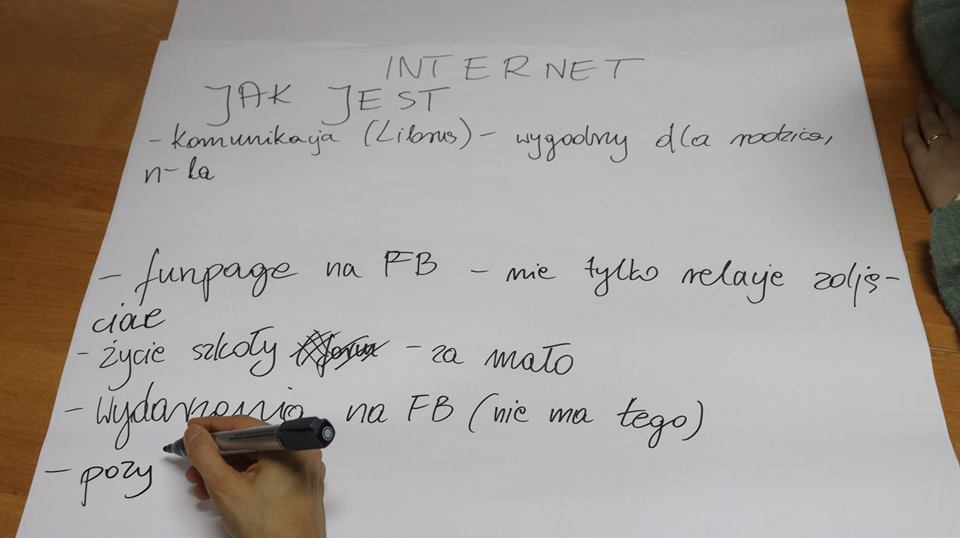 INTERNET
JAK JEST
- komunikacja (Librus) - wygodny dla rodzica,
n-la
- funpage na FB - nie tylko relacje zdję-
ciae
- życie szkoły - za mało
- wydarzenia na FB (nie ma tego)
- pozy